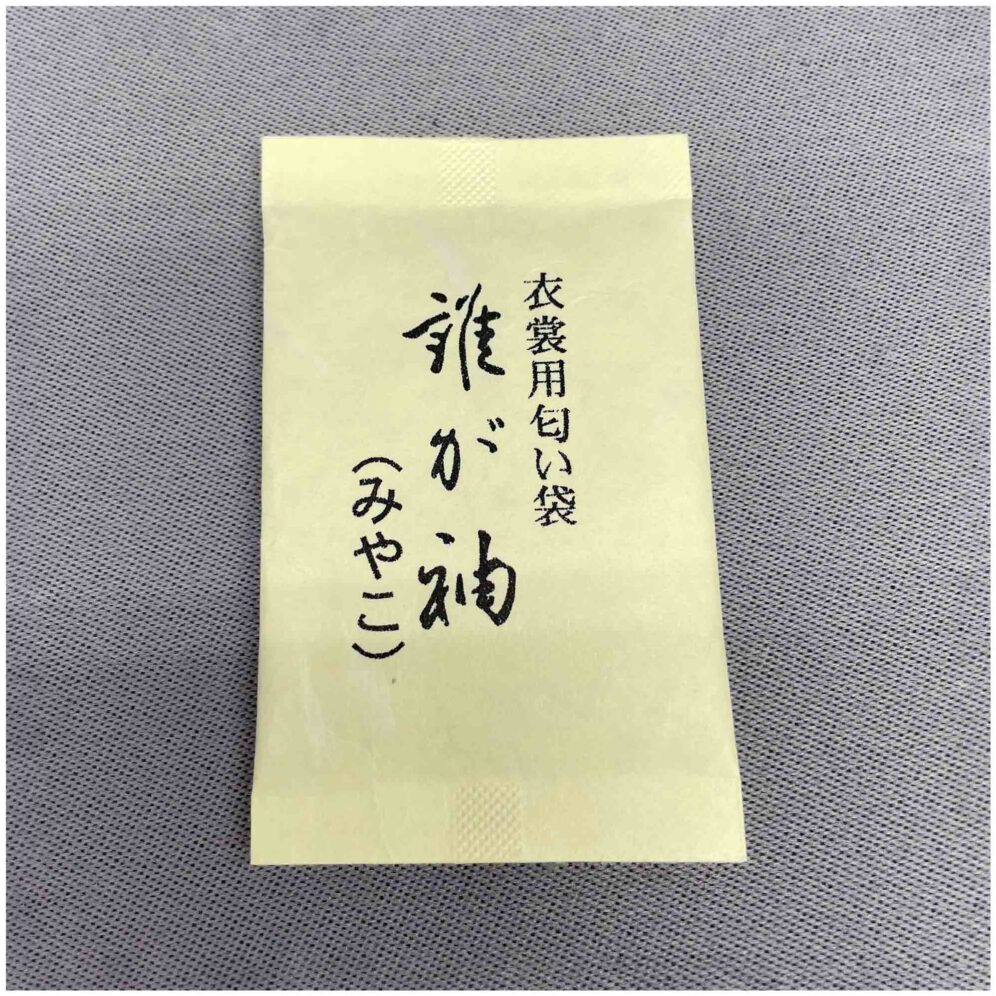 衣裳用匂い袋
誰が袖
(みやこ)